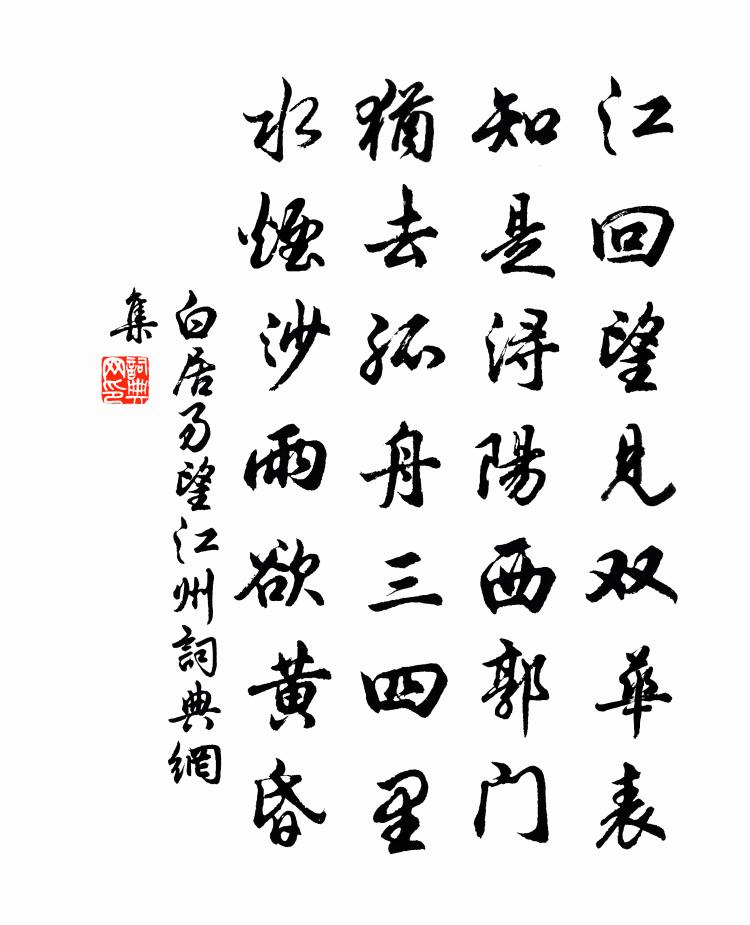 江回望見双華表
知是潯陽西郭门
猶去孤舟三四里
水煙沙雨欲黄昏
白居易望江州詞典網
集
詞典
网印